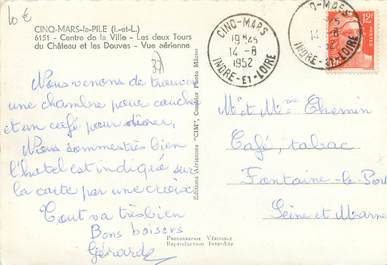 10€
CINQ-MARS-la-PILE (I.-et-L.)
6151 - Centre de la Ville - Les deux Tours
du Château et les Douves - Vue aérienne
37
Nous venons de trouver
une chambre pour coucher
et un café pour dîner,
Nous sommes très bien
l'hotel est indiqué sur
la carte par une croix
Tout va très bien
Bons baisers
Gérard
Editions Aériennes "CIM"
CINQ-MARS
19H45
14-8
1952
INDRE-ET-LOIRE
CINQ-MARS
14-8
1952
INDRE-ET-LOIRE
15F
POSTES
Mr et Mme Chemin
Café, tabac
Fontaine-le-Port
Seine et Marne
Photographie Véritable
Reproduction Interdite